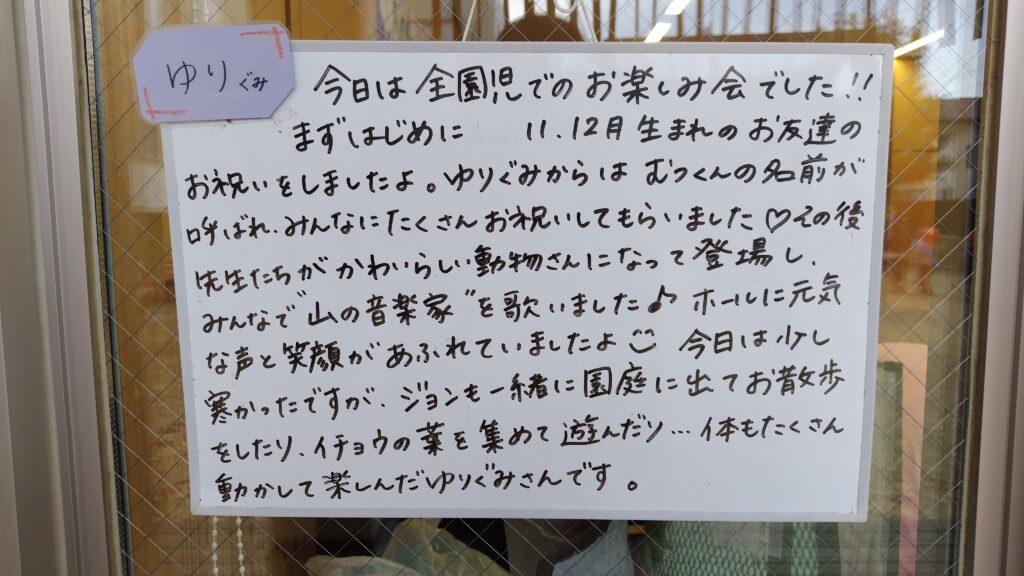 ゆりぐみ
今日は全園児でのお楽しみ会でした!!
まずはじめに 11.12月生まれのお友達の
お祝いをしましたよ。ゆりぐみからはむつくんの名前が
呼ばれ、みんなにたくさんお祝いしてもらいました♡その後
先生たちがかわいらしい動物さんになって登場し、
みんなで"山の音楽家"を歌いました♪ ホールに元気
な声と笑顔があふれていましたよ☺ 今日は少し
寒かったですが、ジョンも一緒に園庭に出てお散歩
をしたり、イチョウの葉を集めて遊んだり…体もたくさん
動かして楽しんだゆりぐみさんです。